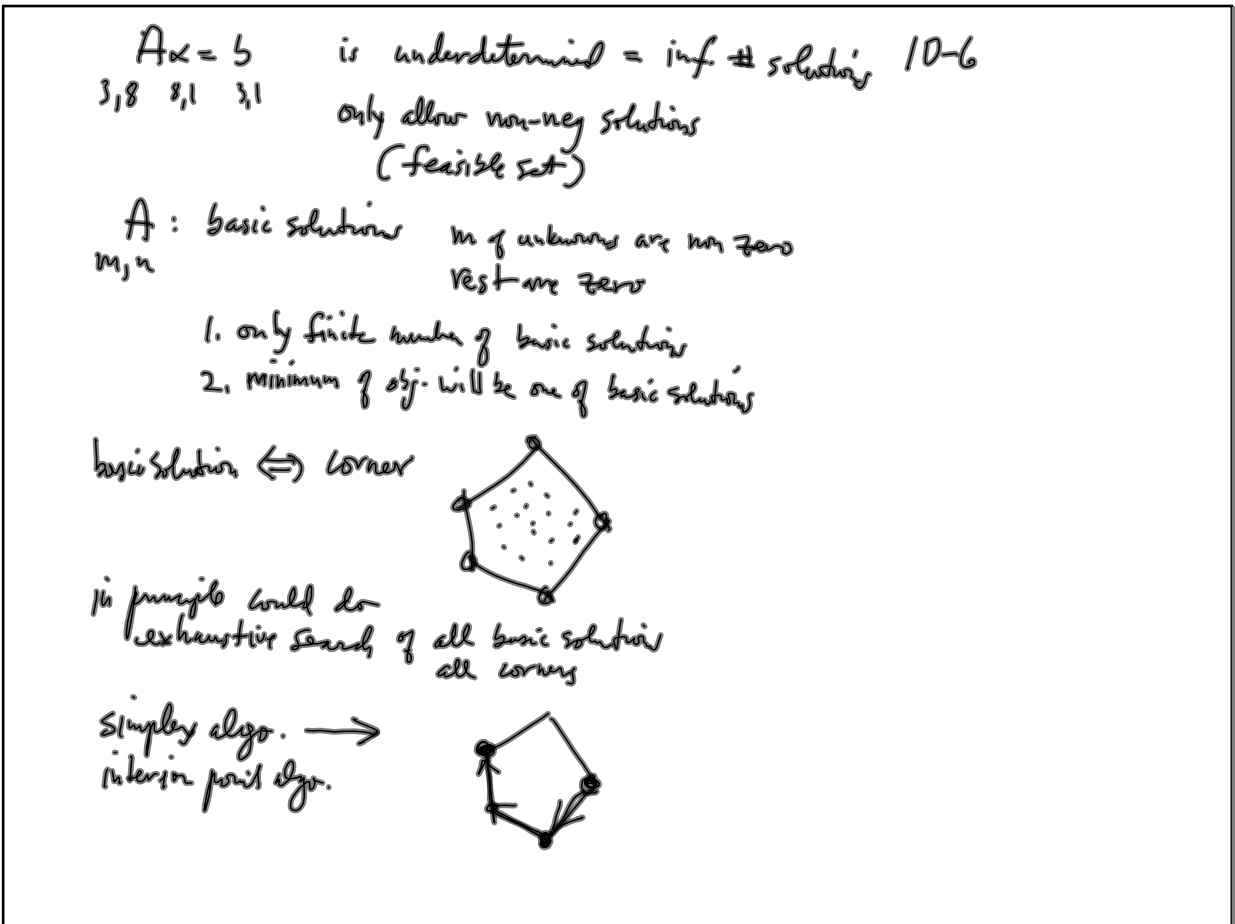 Ax = b is underdetermined = inf. # solutions 10-6
3,8 8,1 3,1
only allow non-neg solutions
(feasible set)
A : basic solutions m of unknowns are non zero
m,n
rest are zero
1. only finite number of basic solutions
2. minimum of obj. will be one of basic solutions
basic solution ⇔ corner
in principle could do
exhaustive search of all basic solutions
all corners
simplex algo. →
interior point algo.